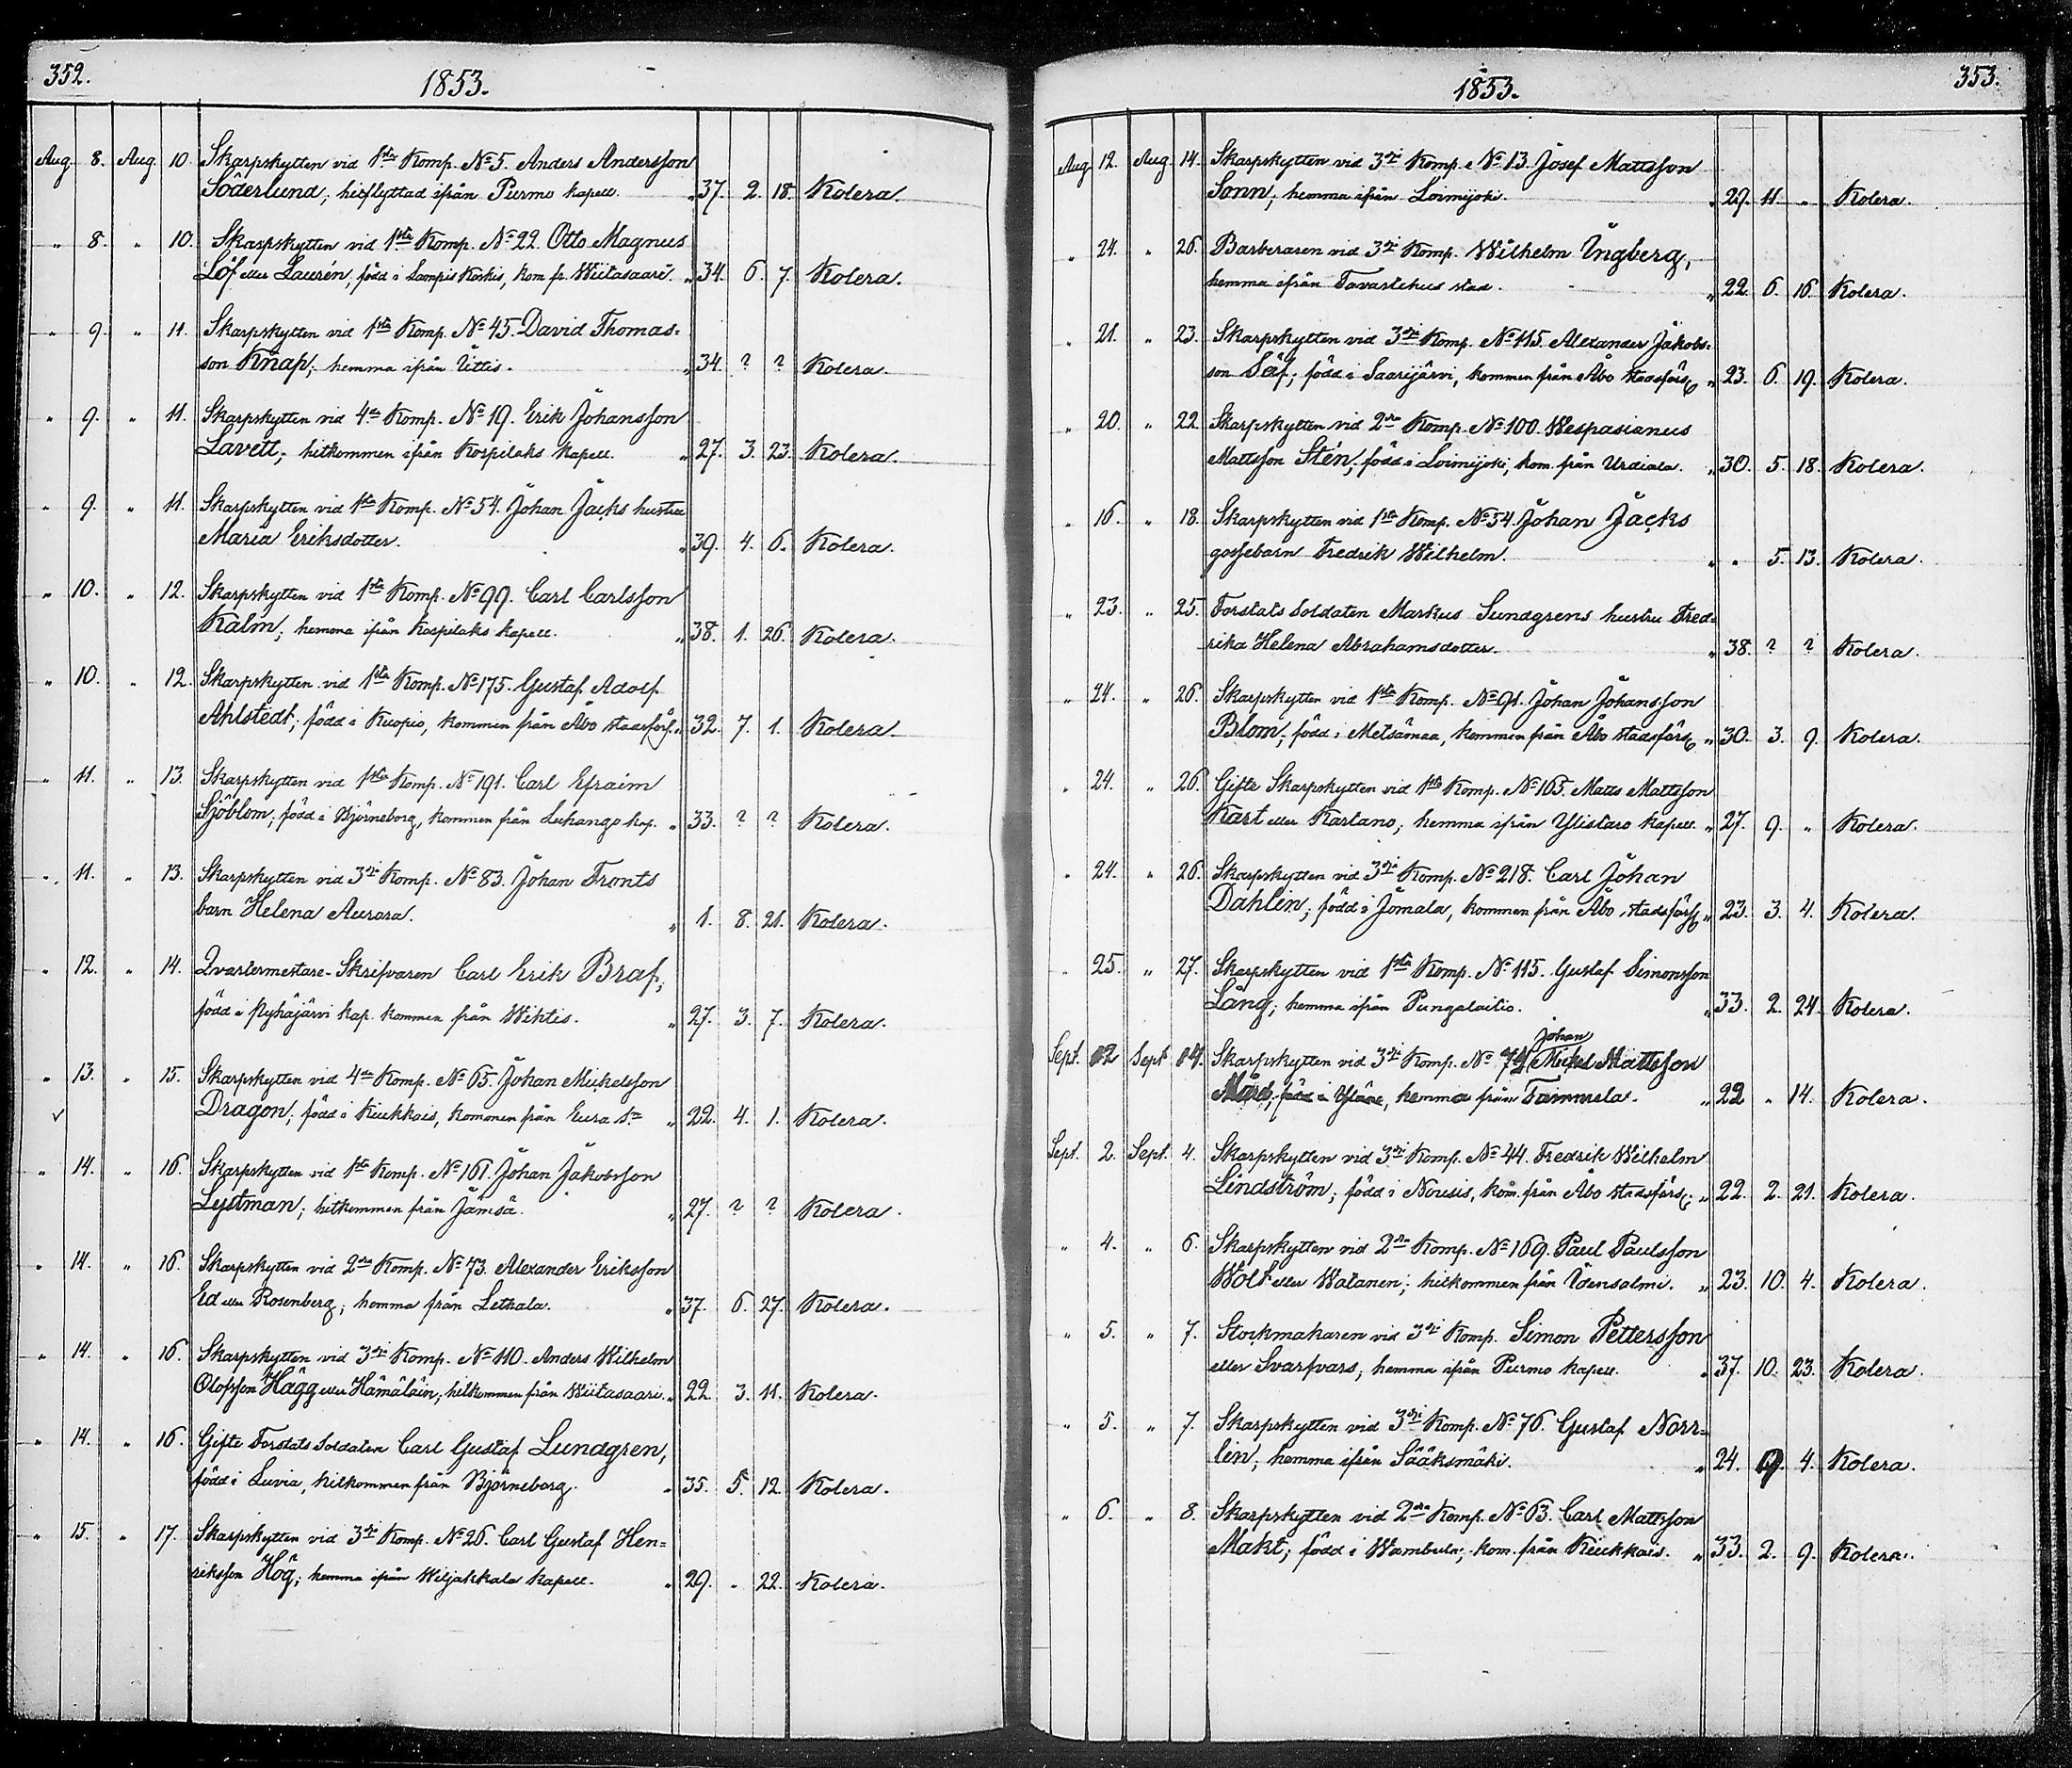 352.
1853.
Aug. 8. Aug. 10. Skarpskytten vid 1sta Komp. No 5. Anders Andersson
Söderlund; hitflyttad ifrån Purmo kapell. " 37. 2. 18. Kolera.
" 8. " 10. Skarpskytten vid 1sta Komp. No 22. Otto Magnus
Löf eller Laurén, född i Lampis Koskis, kom fr. Wiitasaari. " 34. 6. 7. Kolera.
" 9. " 11. Skarpskytten vid 1sta Komp. No 45. David Thomas-
son Knap; hemma ifrån Üttis. " 34. ? ? Kolera.
" 9. " 11. Skarpskytten vid 4de Komp. No 19. Erik Johansson
Lavett; hitkommen ifrån Korpilaks kapell. " 27. 3. 23. Kolera.
" 9. " 11. Skarpskytten vid 1sta Komp. No 54. Johan Jacks hustru
Maria Eriksdotter. " 39. 4. 6. Kolera.
" 10. " 12. Skarpskytten vid 1sta Komp. No 99. Carl Carlsson
Kalm; hemma ifrån Korpilaks kapell. " 38. 1. 26. Kolera.
" 10. " 12. Skarpskytten vid 1sta Komp. No 175. Gustaf Adolf
Ahlstedt; född i Kuopio, kommen från Åbo stadsförs. " 32. 7. 1. Kolera.
" 11. " 13. Skarpskytten vid 1sta Komp. No 191. Carl Efraim
Sjöblom; född i Björneborg, kommen från Luhango kap. " 33. ? ? Kolera.
" 11. " 13. Skarpskytten vid 3dje Komp. No 83. Johan Fronts
barn Helena Aurora. " 1. 8. 21. Kolera.
" 12. " 14. Qvartermestare-Skrifvaren Carl Erik Braf,
född i Pyhäjärvi kap. kommen från Wihtis. " 27. 3. 7. Kolera.
" 13. " 15. Skarpskytten vid 4de Komp. No 65. Johan Mickelsson
Dragon; född i Kiukkais, kommen från Eura Sn " 22. 4. 1. Kolera.
" 14. " 16. Skarpskytten vid 1sta Komp. No 161. Johan Jakobsson
Lystman; hitkommen från Jämsä. " 27. ? ? Kolera.
" 14. " 16. Skarpskytten vid 2dra Komp. No 73. Alexander Eriksson
Ed eller Rosenberg; hemma från Lethala. " 37. 6. 27. Kolera.
" 14. " 16. Skarpskytten vid 3dje Komp. No 110. Anders Wilhelm
Olofsson Hägg eller Hämäläin; hitkommen från Wiitasaari. " 22. 3. 11. Kolera.
" 14. " 16. Gifte Forstats Soldaten Carl Gustaf Lundgren,
född i Luvia, hitkommen från Björneborg. " 35. 5. 12. Kolera.
" 15. " 17. Skarpskytten vid 3dje Komp. No 26. Carl Gustaf Hen-
riksson Hög; hemma ifrån Wiljakkala kapell. " 29. " 22. Kolera.
353.
1853.
Aug. 12. Aug. 14. Skarpskytten vid 3dje Komp. No 13. Josef Mattsson
Sonn; hemma ifrån Loimijoki. " 29. 11. " Kolera.
" 24. " 26. Barberaren vid 3dje Komp. Wilhelm Üngberg,
hemma ifrån Tavastehus stad. " 22. 6. 16. Kolera.
" 21. " 23. Skarpskytten vid 3dje Komp. No 115. Alexander Jakobs-
son Säf; född i Saarijärvi, kommen från Åbo stadsförs. " 23. 6. 19. Kolera.
" 20. " 22. Skarpskytten vid 2dra Komp. No 100. Wespasianus
Mattsson Stén; född i Loimijoki, kom. från Urdiala. " 30. 5. 18. Kolera.
" 16. " 18. Skarpskytten vid 1sta Komp. No 54. Johan Jacks
gossebarn Fredrik Wilhelm. " " 5. 13. Kolera.
" 23. " 25. Forstats Soldaten Markus Sundgrens hustru Fred-
rika Helena Abrahamsdotter. " 38. ? ? Kolera.
" 24. " 26. Skarpskytten vid 1sta Komp. No 91. Johan Johansson
Blom; född i Metsämaa, kommen från Åbo stadsförs. " 30. 3. 9. Kolera.
" 24. " 26. Gifte Skarpskytten vid 1sta Komp. No 165. Matts Mattsson
Kart eller Kartano; hemma ifrån Ylistaro kapell. " 27. 9. " Kolera.
" 24. " 26. Skarpskytten vid 3dje Komp. No 218. Carl Johan
Dahlin; född i Jomala, kommen från Åbo stadsförs. " 23. 3. 4. Kolera.
" 25. " 27. Skarpskytten vid 1sta Komp. No 115. Gustaf Simonsson
Lång; hemma ifrån Pungalaitio. " 33. 2. 24. Kolera.
Johan
Sept. 2 Sept. 4. Skarpskytten vid 3dje Komp. No 74 Mickel Mattsson
Mård; född i Yläne, hemma från Tammela. " 22 " 14. Kolera.
Sept. 2. Sept. 4. Skarpskytten vid 3dje Komp. No 44. Fredrik Wilhelm
Lindström; född i Nousis, kom. från Åbo stadsförs. " 22. 2. 21. Kolera.
" 4. " 6. Skarpskytten vid 2dra Komp. No 169. Paul Paulsson
Wolt eller Watanen; hitkommen från Idensalmi. " 23. 10. 4. Kolera.
" 5. " 7. Stockmakaren vid 3dje Komp. Simon Pettersson
eller Svarfvars, hemma ifrån Purmo kapell. " 37. 10. 23. Kolera.
" 5. " 7. Skarpskytten vid 3dje Komp. No 76. Gustaf Norr-
lin; hemma ifrån Sääksmäki. " 24. 9. 4. Kolera.
" 6. " 8. Skarpskytten vid 2dra Komp. No 63. Carl Mattsson
Makt; född i Wambula; kom. från Kiukkais. " 33. 2. 9. Kolera.